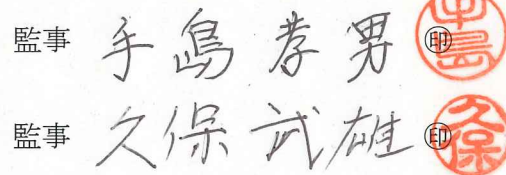 監事 手島孝男 ㊞ 手島
監事 久保武雄 ㊞ 久保